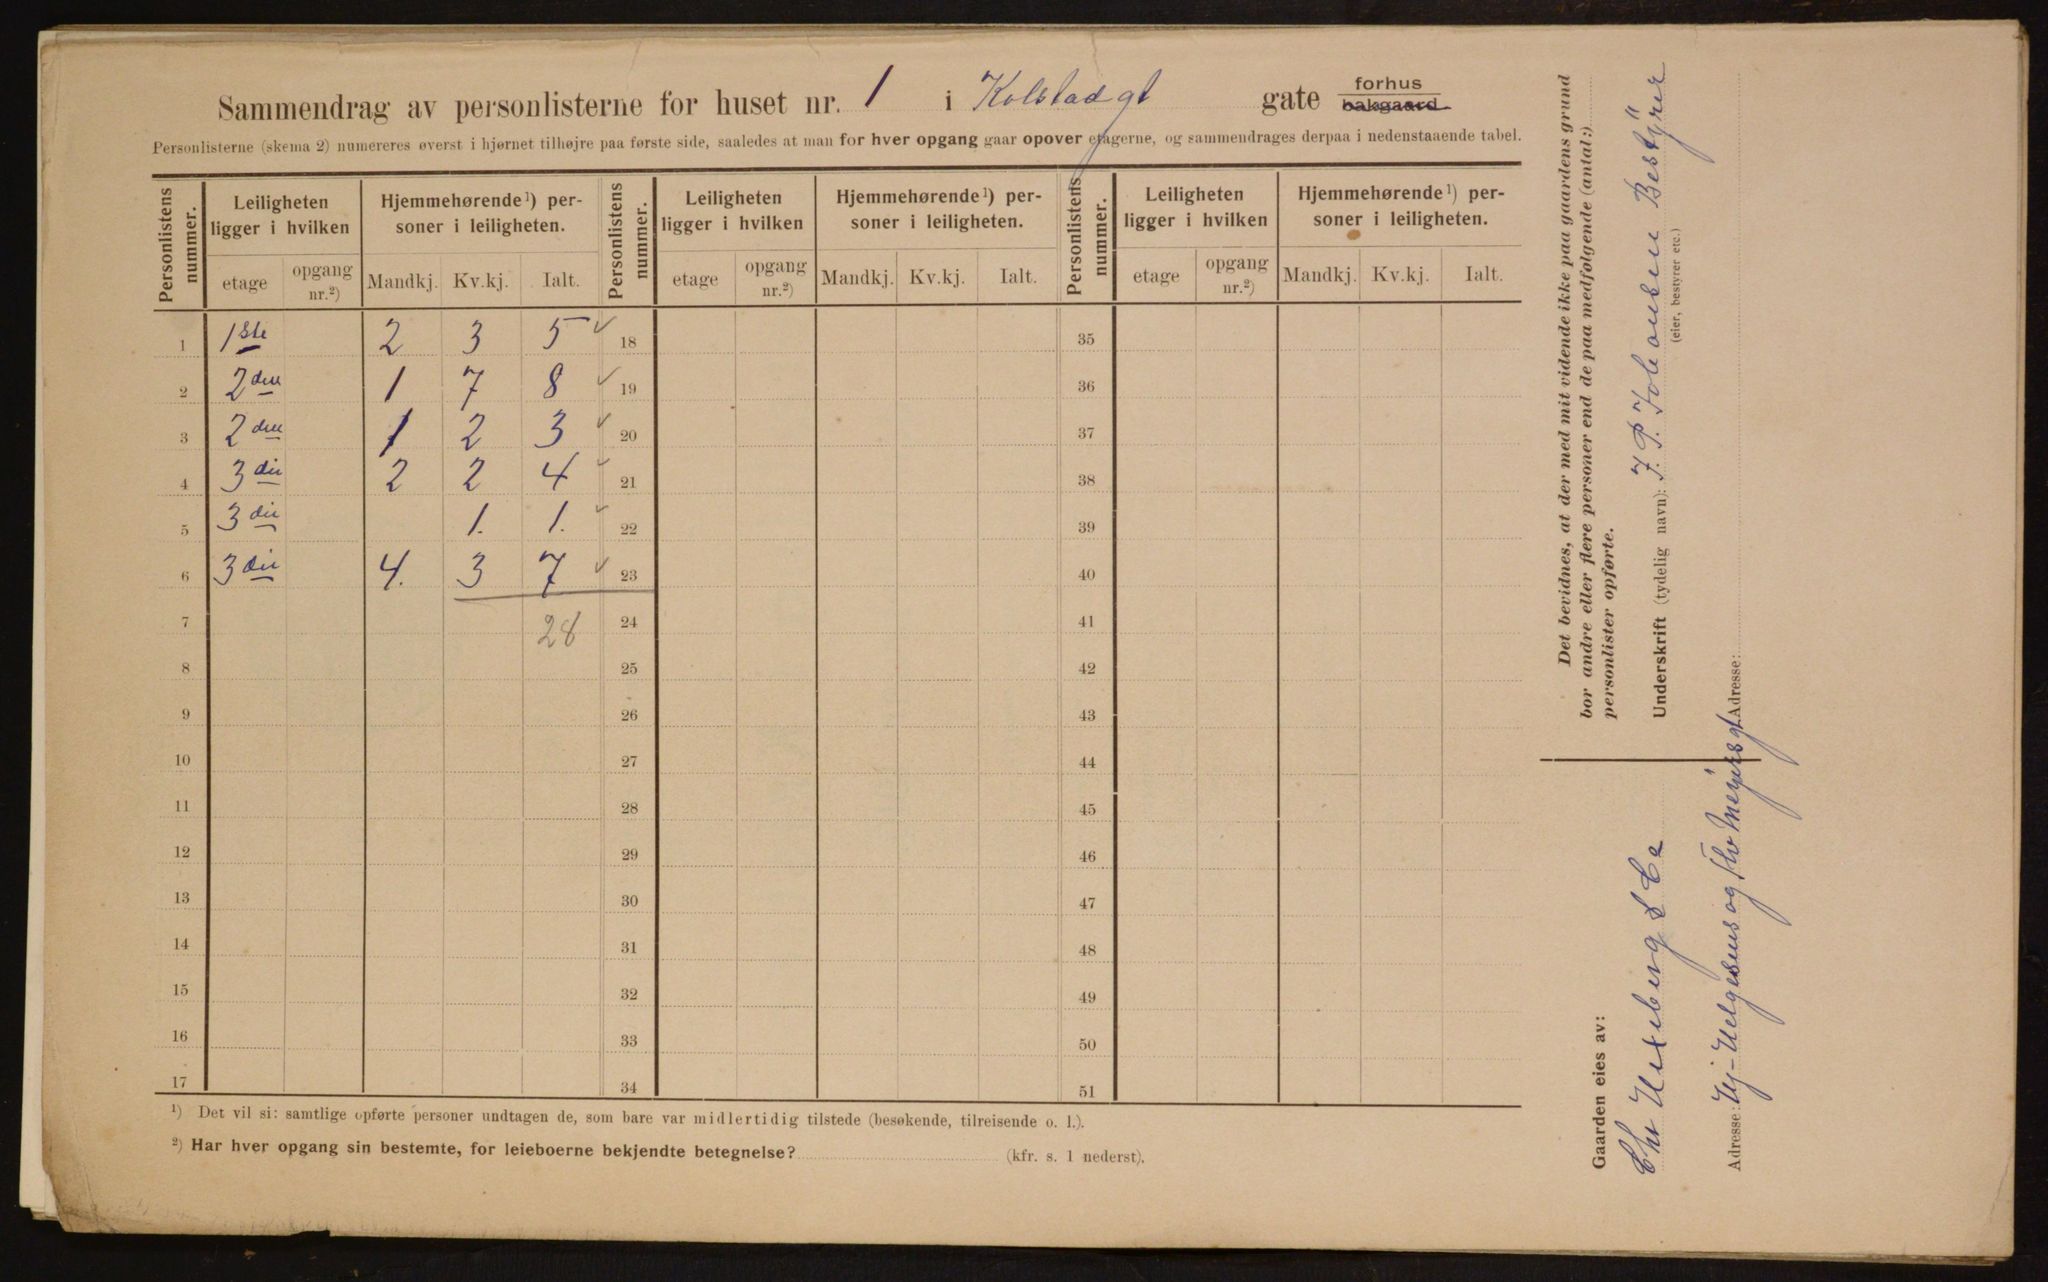 Sammendrag av personlisterne for huset nr. 1 i Kolstadgt gate forhus bakgaard.
Personlisterne (skema 2) numereres øverst i hjørnet tilhøjre paa første side, saaledes at man for hver opgang gaar opover etagerne, og sammendrages derpaa i nedenstaaende tabel.
Personlistens nummer. Leiligheten ligger i hvilken Hjemmehørende ¹) personer i leiligheten. Personlistens nummer. Leiligheten ligger i hvilken Hjemmehørende ¹) personer i leiligheten. Personlistens nummer. Leiligheten ligger i hvilken Hjemmehørende ¹) personer i leiligheten.
etage opgang nr.²) Mandkj. Kv.kj. Ialt. etage opgang nr.²) Mandkj. Kv.kj. Ialt. etage opgang nr.²) Mandkj. Kv.kj. Ialt.
1 1ste 2 3 5 ✓ 18 35
2 2den 1 7 8 ✓ 19 36
3 2den 1 2 3 ✓ 20 37
4 3die 2 2 4 ✓ 21 38
5 3die 1. 1. ✓ 22 39
6 3die 4. 3 7 ✓ 23 40
7 28 24 41
8 25 42
9 26 43
10 27 44
11 28 45
12 29 46
13 30 47
14 31 48
15 32 49
16 33 50
17 34 51
¹) Det vil si: samtlige opførte personer undtagen de, som bare var midlertidig tilstede (besøkende, tilreisende o. l.).
²) Har hver opgang sin bestemte, for leieboerne bekjendte betegnelse? (kfr. s. 1 nederst).
Det bevidnes, at der med mit vidende ikke paa gaardens grund
bor andre eller flere personer end de paa medfølgende (antal:)
personlister opførte.
Underskrift (tydelig navn): J. P. Johansen Bestÿrer
(eier, bestyrer etc.)
Adresse:
Gaarden eies av:
Chr Hexeberg & Co
Adresse: Hj- Helgesens og Thv Meÿersgt